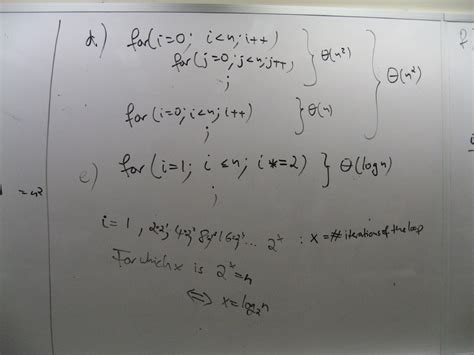 d.) for(i=0; i<n; i++)
for(j=0; j<n; j++) } Θ(n²)
;
for(i=0; i<n; i++) } Θ(n) } Θ(n²)
;
e) for(i=1; i≤n; i*=2) } Θ(logn)
;
i=1, 2=2¹, 4=2², 8=2³, 16=2⁴, ... 2ˣ : x=# iterations of the loop
For which x is 2ˣ=n
⇔ x=log₂n